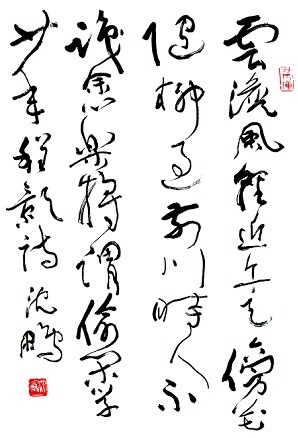 雲淡風輕近午天傍花
隨柳過前川時人不
識余心樂將謂偷閑學
少年程顥詩沈鵬